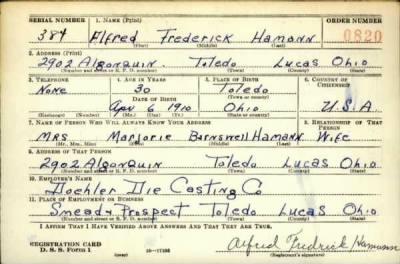 SERIAL NUMBER 1. NAME (Print) ORDER NUMBER
384 Alfred Frederick Hamann 0820
(First) (Middle) (Last)
2. ADDRESS (Print)
2902 Algonquin Toledo Lucas Ohio
(Number and street or R. F. D. number) (Town) (County) (State)
3. TELEPHONE 4. AGE IN YEARS 5. PLACE OF BIRTH 6. COUNTRY OF CITIZENSHIP
None 30 Toledo
DATE OF BIRTH (Town or county)
Apr 6 1910 Ohio U.S.A
(Exchange) (Number) (Mo.) (Day) (Yr.) (State or country)
7. NAME OF PERSON WHO WILL ALWAYS KNOW YOUR ADDRESS 8. RELATIONSHIP OF THAT PERSON
Mrs Marjorie Barnswell Hamann Wife
(Mr., Mrs., Miss) (First) (Middle) (Last)
9. ADDRESS OF THAT PERSON
2902 Algonquin Toledo Lucas Ohio
(Number and street or R. F. D. number) (Town) (County) (State)
10. EMPLOYER'S NAME
Doehler Die Casting Co
11. PLACE OF EMPLOYMENT OR BUSINESS
Smead & Prospect Toledo Lucas Ohio
(Number and street or R. F. D. number) (Town) (County) (State)
I AFFIRM THAT I HAVE VERIFIED ABOVE ANSWERS AND THAT THEY ARE TRUE.
REGISTRATION CARD
D. S. S. Form 1 Alfred Fredrick Hamann
(Registrant's signature)